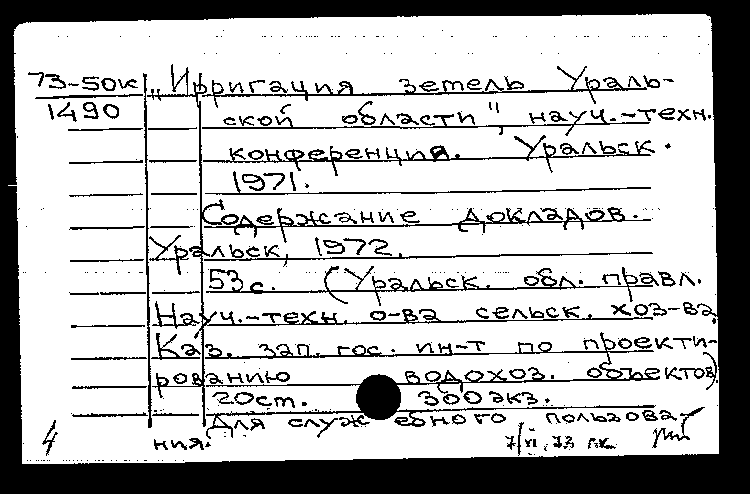 73-50к „Ирригация земель Ураль-
1490 ской области", науч.-техн.
конференция. Уральск.
1971.
Содержание докладов.
Уральск, 1972.
53с. (Уральск. обл. правл.
Науч.-техн. о-ва сельск. хоз-ва,
Каз. зап. гос. ин-т по проекти-
рованию водохоз. объектов)
20см. 300экз.
Для служебного пользова-
4 ния. 7/VI.73